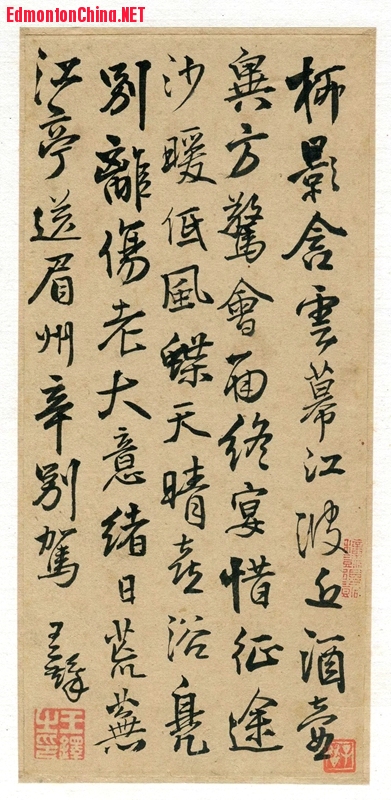 EdmontonChina.NET
柳影含雲幕江波近酒壺
異方驚會面終宴惜征途
沙暖低風蝶天晴喜浴鳧
別離傷老大意緒日荒蕪
江亭送眉州辛別駕
王鐸
王鐸之印